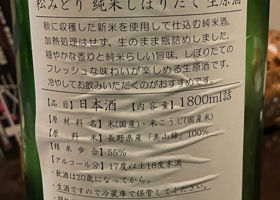 松みどり 純米しぼりたて 生原酒
秋に収穫した新米を使用して仕込む純米酒。
加熱処理はせず、生のまま瓶詰めしました。
穏やかな香りと純米らしい旨味、しぼりたての
フレッシュな味わいが楽しめる生原酒です。
冷やしてお飲みいただくのがおすすめです。
【品目】日本酒 【内容量】1800ml詰
【原材料名】米(国産)・米こうじ(国産米)
【原料米】長野県産「美山錦」100%
【精米歩合】55%
【アルコール分】17度以上18度未満
・飲酒は20歳になってから。
・生酒ですので冷蔵庫で保管してください。